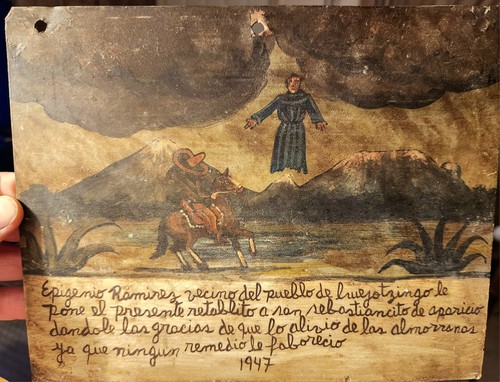 Epigenio Ramirez vecino del pueblo de huejotzingo le
pone el presente retablito a san sebastiancito de aparicio
dandole las gracias de que lo alivio de las almorranas
ya que ningun remedio le faborecio
1947